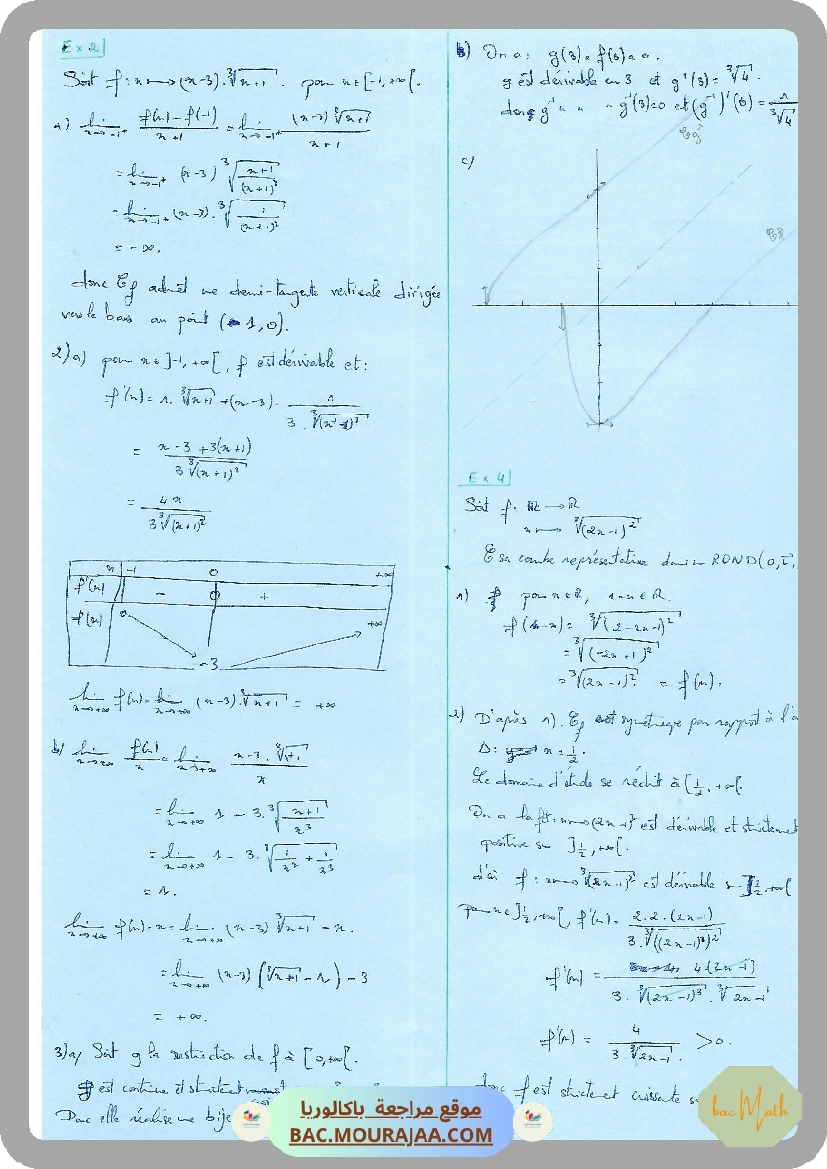 Ex 2
Soit f : x ↦ (x-3).∛(x+1) pour x ∈ [-1, +∞[.
1) lim x→-1⁺ (f(x) - f(-1))/(x+1) = lim x→-1⁺ ((x-3)∛(x+1))/(x+1)
= lim x→-1⁺ (x-3) ∛((x+1)/(x+1)³)
= lim x→-1⁺ (x-3). ∛(1/(x+1)²)
= -∞.
donc Cf admet une demi-tangente verticale dirigée
vers le bas au point (-1,0).
2) a) pour x ∈ ]-1, +∞[, f est dérivable et :
f'(x) = 1. ∛(x+1) + (x-3). 1/(3.∛(x+1)²)
= (x-3+3(x+1))/(3∛(x+1)²)
= 4x/(3∛(x+1)²)
x -1 0 +∞
f'(x) - 0 +
f(x) 0 -3 +∞
lim x→+∞ f(x) = lim x→+∞ (x-3).∛(x+1) = +∞
b/ lim x→+∞ f(x)/x = lim x→+∞ x-3.∛(x+1) / x
= lim x→+∞ 1 - 3.∛((x+1)/x³)
= lim x→+∞ 1 - 3.∛(1/x² + 1/x³)
= 1.
lim x→+∞ f(x)-x = lim x→+∞ (x-3)∛(x+1) - x.
= lim x→+∞ (x-3)(∛(x+1) - 1) - 3
= +∞.
3) a/ Soit g la restriction de f à [0,+∞[.
g est continue et strictement
Donc elle réalise une bije
b) On a : g(3) = f(3) = 0.
g est dérivable en 3 et g'(3) = ∛4.
donc g⁻¹ " " " g⁻¹(3)=0 et (g⁻¹)'(0) = 1/∛4
c/
Cg⁻¹
Cg
-3
Ex 4
Soit f : ℝ → ℝ
x ↦ ∛(2x-1)²
C sa courbe représentative dans un ROND(O, i,
1) pour x ∈ ℝ, 1-x ∈ ℝ.
f(1-x) = ∛(2-2x-1)²
= ∛(-2x+1)²
= ∛(2x-1)² = f(x).
2) D'après 1). Cf est symétrique par rapport à l'a
Δ : x = 1/2.
Le domaine d'étude se réduit à [1/2, +∞[.
On a la fct : x ↦ (2x-1)² est dérivable et strictement
positive sur ]1/2, +∞[.
d'où f : x ↦ ∛(2x-1)² est dérivable s. ]1/2, +∞[
pour x ∈ ]1/2, +∞[, f'(x) = 2.2.(2x-1)/(3.∛((2x-1)²)²)
f'(x) = 4.(2x-1)/(3.∛(2x-1)³.∛(2x-1))
f'(x) = 4/(3.∛(2x-1)) > 0.
donc f est strictement croissante s
موقع مراجعة باكالوريا
BAC.MOURAJAA.COM
bac Math